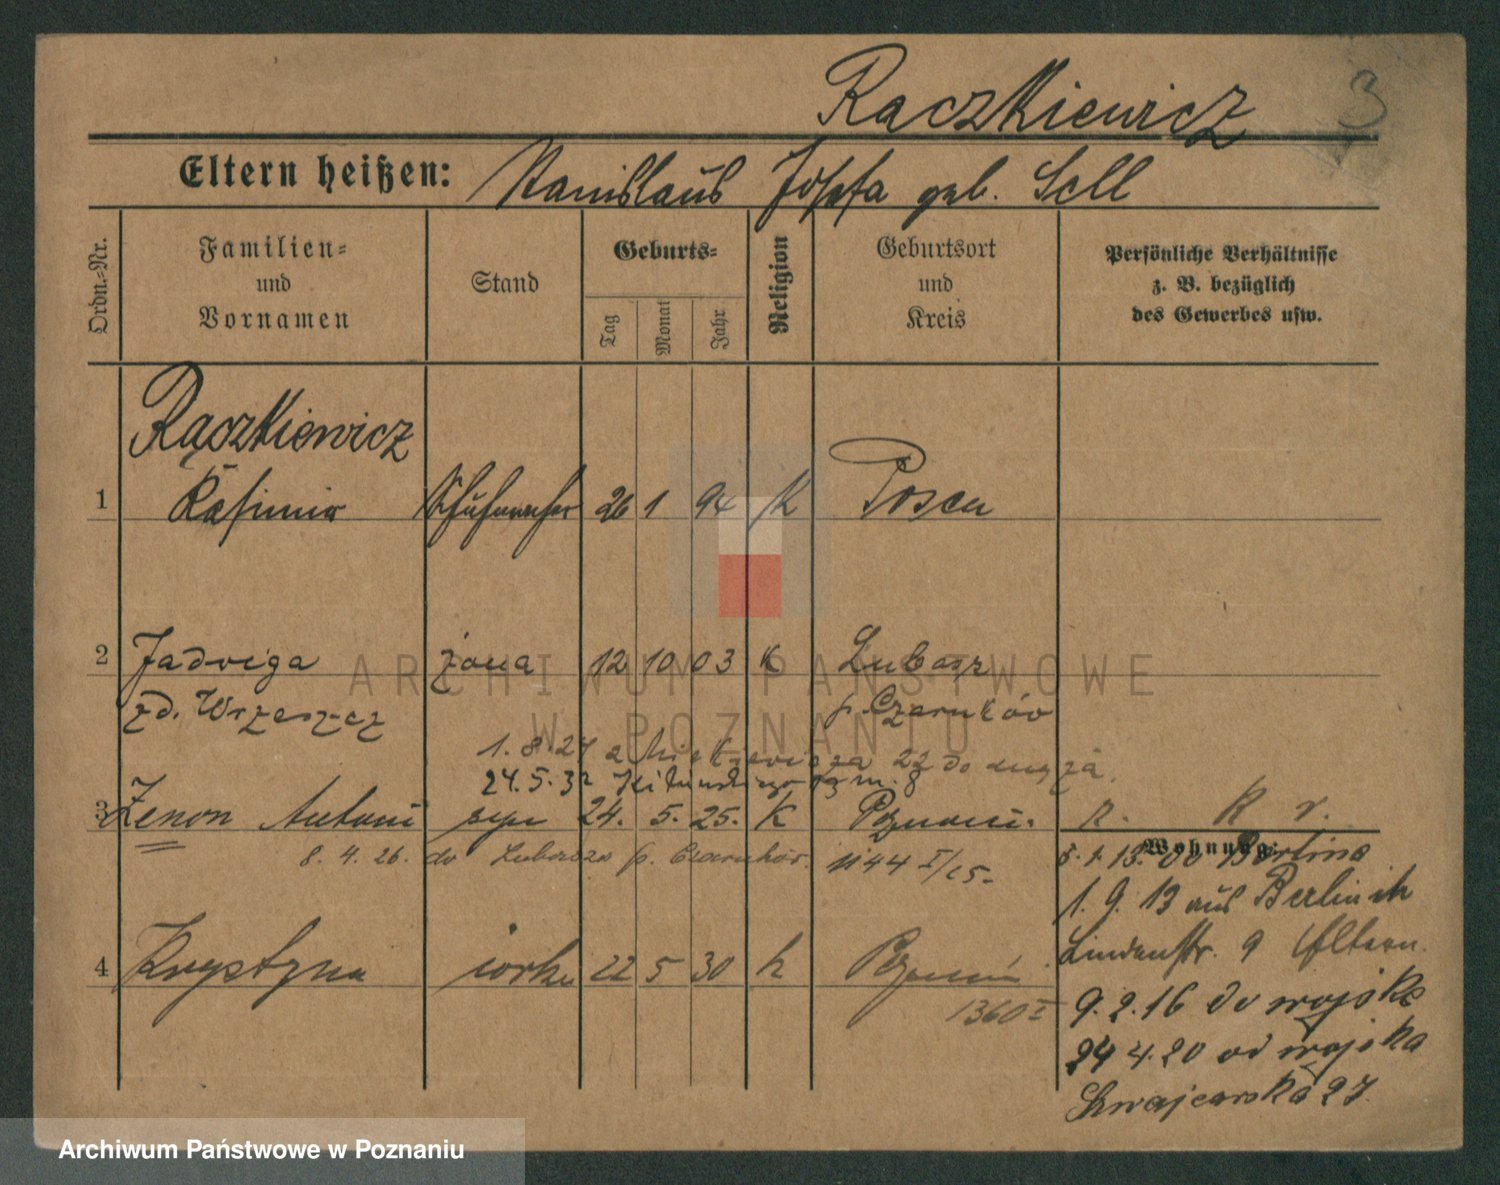 Raczkiewicz 3
Eltern heißen: Stanislaus Josefa geb. Sell
Ordn.=Nr.
Familien=
und
Vornamen
Stand
Geburts=
Tag
Monat
Jahr
Religion
Geburtsort
und
Kreis
Persönliche Verhältnisse
z. B. bezüglich
des Gewerbes usw.
Raczkiewicz
1 Kasimir Schuhmacher 26 1 94 K Posen
2 Jadwiga żona 12 10 03 K Lubasz
zd. Wrzeszcz p. Czarnków
1. 8. 24 a Mickiewicza 22 do męża
24. 5. 32 m. 8
3 Zenon Antoni syn 24. 5. 25. K Poznań.
r. K r.
8. 4. 26. do Lubasza p. Czarnków. 1144 I/25
Wohnung:
5. 1. 13. do Berlina
1. 9. 13 aus Berlin ih
Lindenstr. 9 Eltern.
4 Krystyna córka 22 5 30 k Poznań
1360 I
9. 2. 16 do wojska
24 4. 20 od wojska
Szwajcarska 27
ARCHIWUM PAŃSTWOWE
W POZNANIU
Archiwum Państwowe w Poznaniu